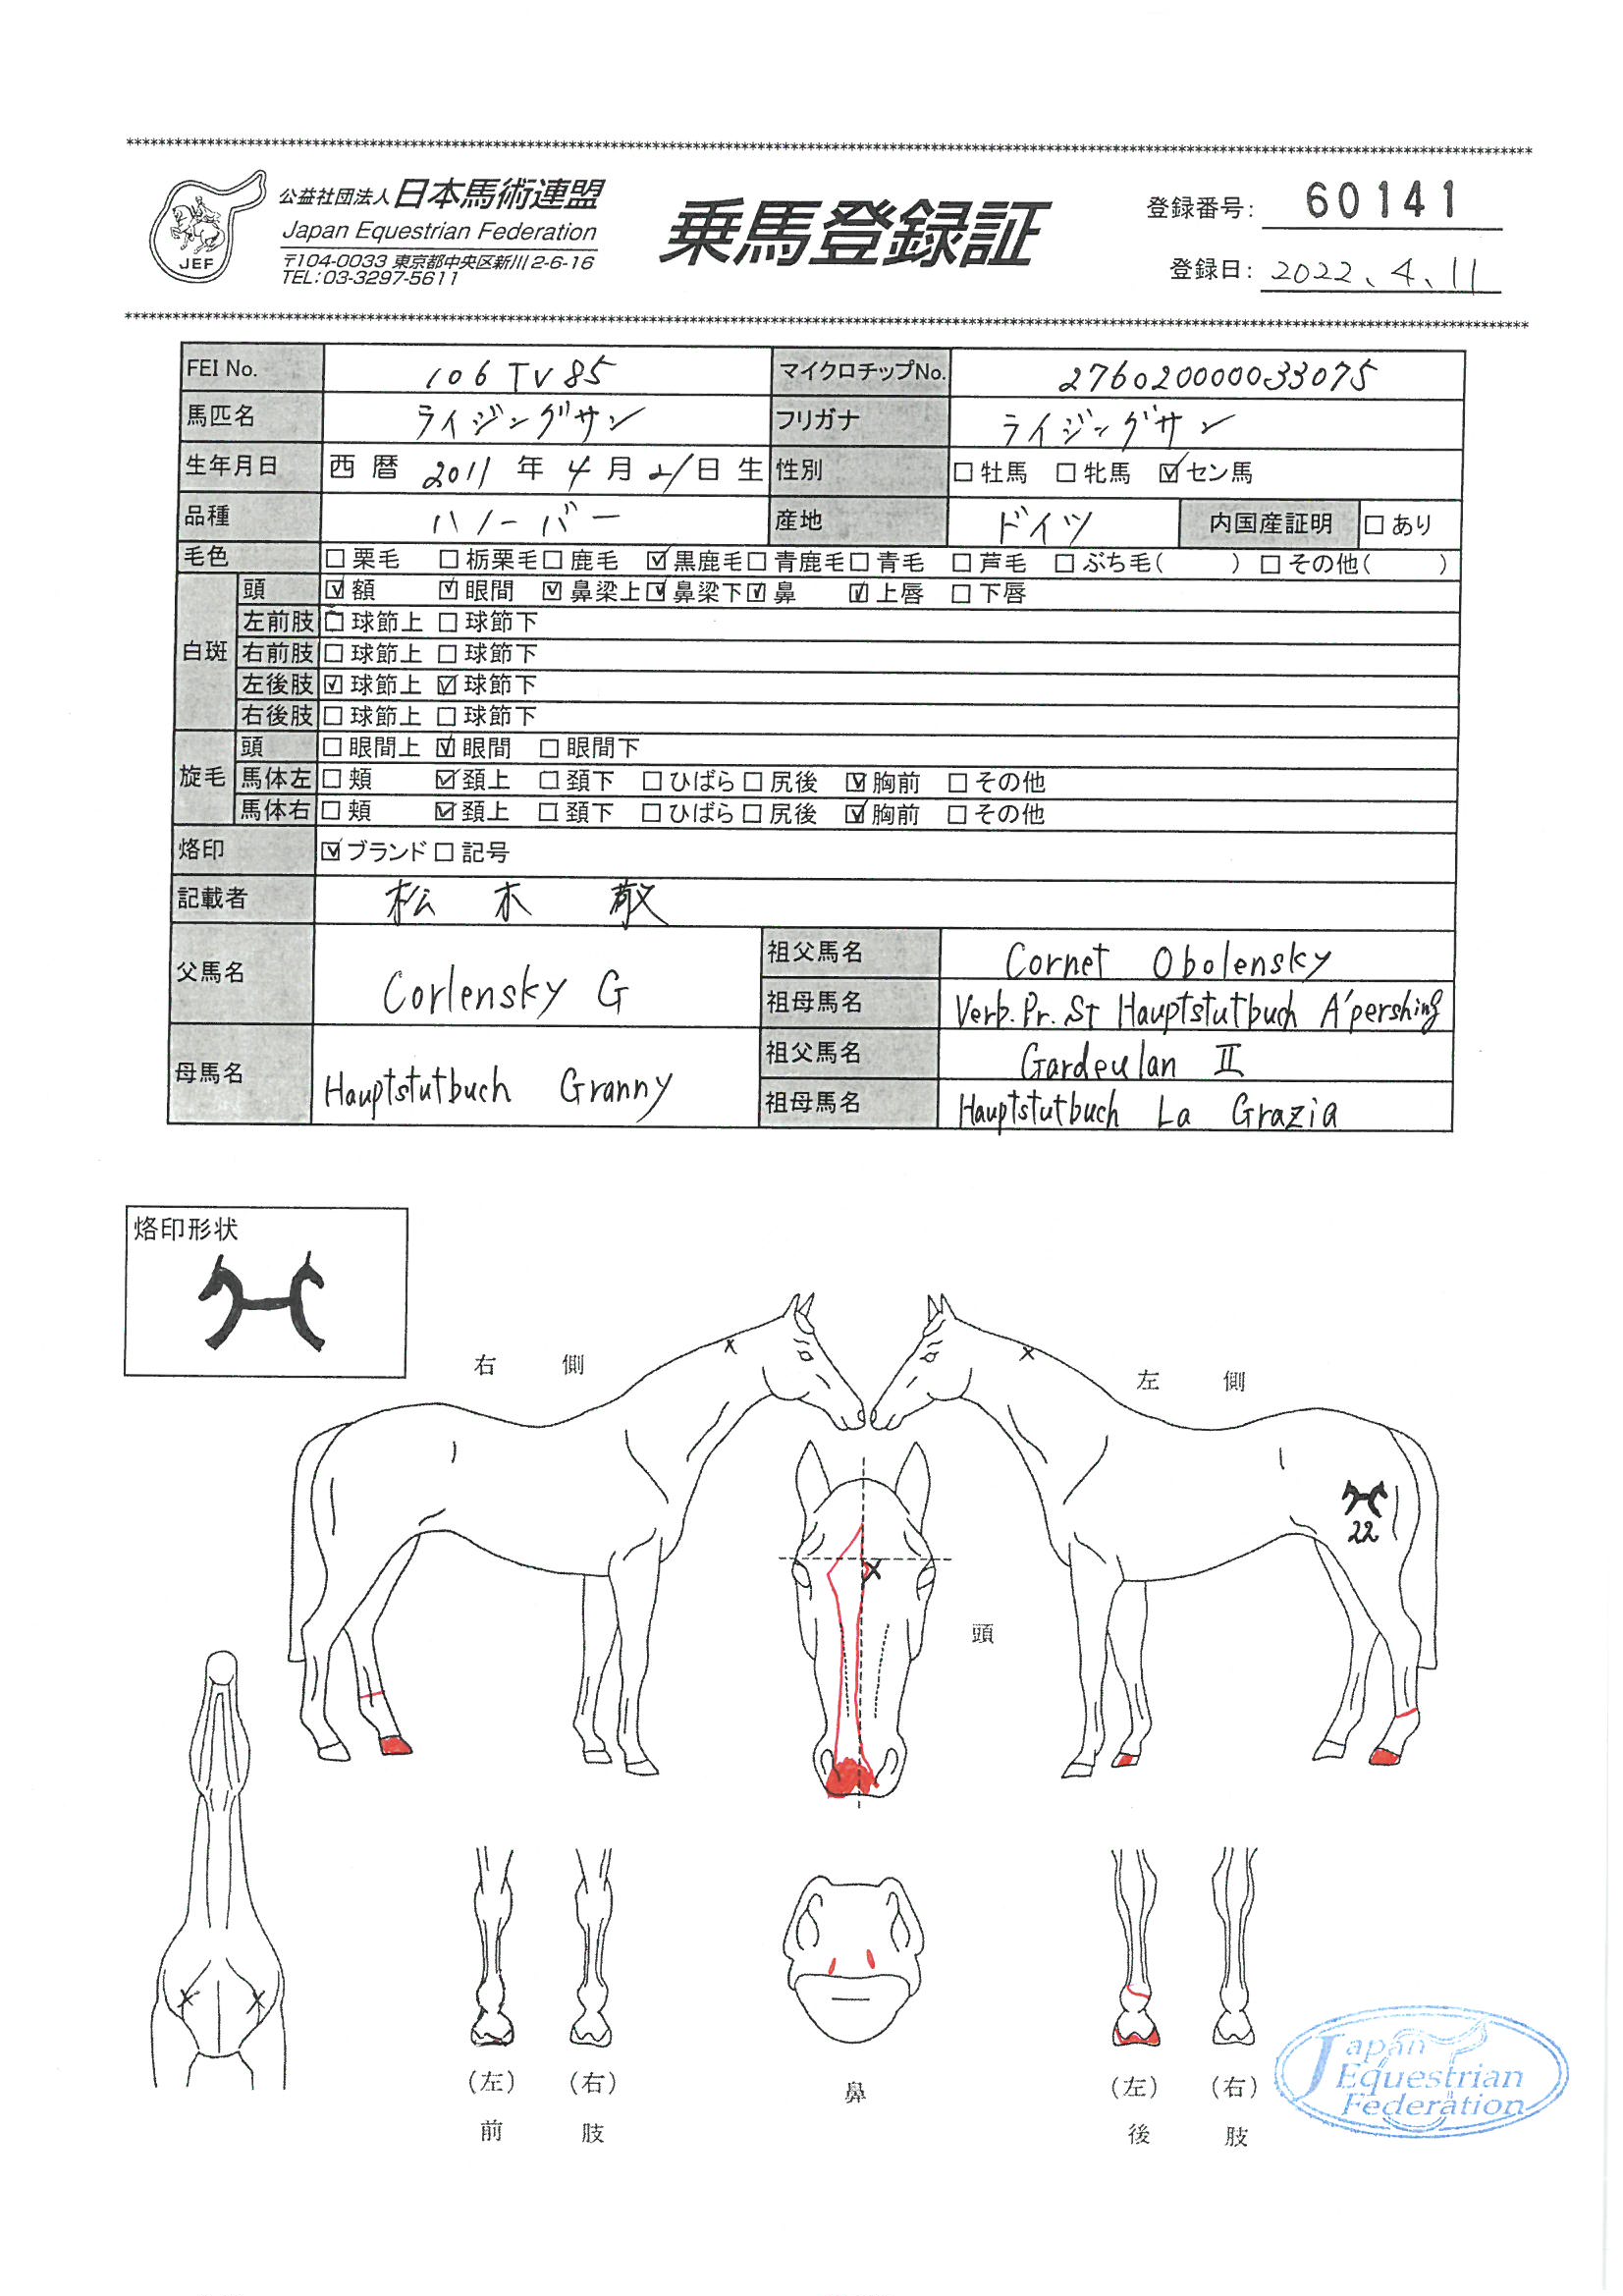 ****************************************************************
公益社団法人日本馬術連盟
Japan Equestrian Federation
〒104-0033 東京都中央区新川2-6-16
TEL:03-3297-5611
JEF
乗馬登録証
登録番号: 60141
登録日: 2022、4、11
****************************************************************
FEI No. 106TV85 マイクロチップNo. 276020000033075
馬匹名 ライジングサン フリガナ ライジングサン
生年月日 西暦 2011 年 4 月 21 日 生 性別 □牡馬 □牝馬 ☑セン馬
品種 ハノーバー 産地 ドイツ 内国産証明 □あり
毛色 □栗毛 □栃栗毛 □鹿毛 ☑黒鹿毛 □青鹿毛 □青毛 □芦毛 □ぶち毛( ) □その他( )
白斑 頭 ☑額 ☑眼間 ☑鼻梁上 ☑鼻梁下 ☑鼻 ☑上唇 □下唇
左前肢 □球節上 □球節下
右前肢 □球節上 □球節下
左後肢 ☑球節上 ☑球節下
右後肢 □球節上 □球節下
旋毛 頭 □眼間上 ☑眼間 □眼間下
馬体左 □頬 ☑頚上 □頚下 □ひばら □尻後 ☑胸前 □その他
馬体右 □頬 ☑頚上 □頚下 □ひばら □尻後 ☑胸前 □その他
烙印 ☑ブランド □記号
記載者 松木 敬
父馬名 Corlensky G 祖父馬名 Cornet Obolensky
祖母馬名 Verb.Pr.St Hauptstutbuch A'pershing
母馬名 Hauptstutbuch Granny 祖父馬名 Gardeulan II
祖母馬名 Hauptstutbuch La Grazia
烙印形状
右 側
左 側
22
頭
(左) (右)
前 肢
鼻
(左) (右)
後 肢
Japan
Equestrian
Federation